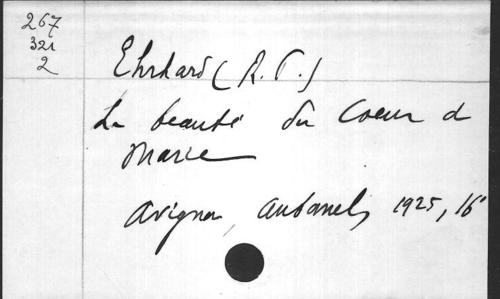 267
321
2
Ehrhard (R. P.)
La beauté du Coeur d
Marie
Avignon, Aubanel, 1925, 16°